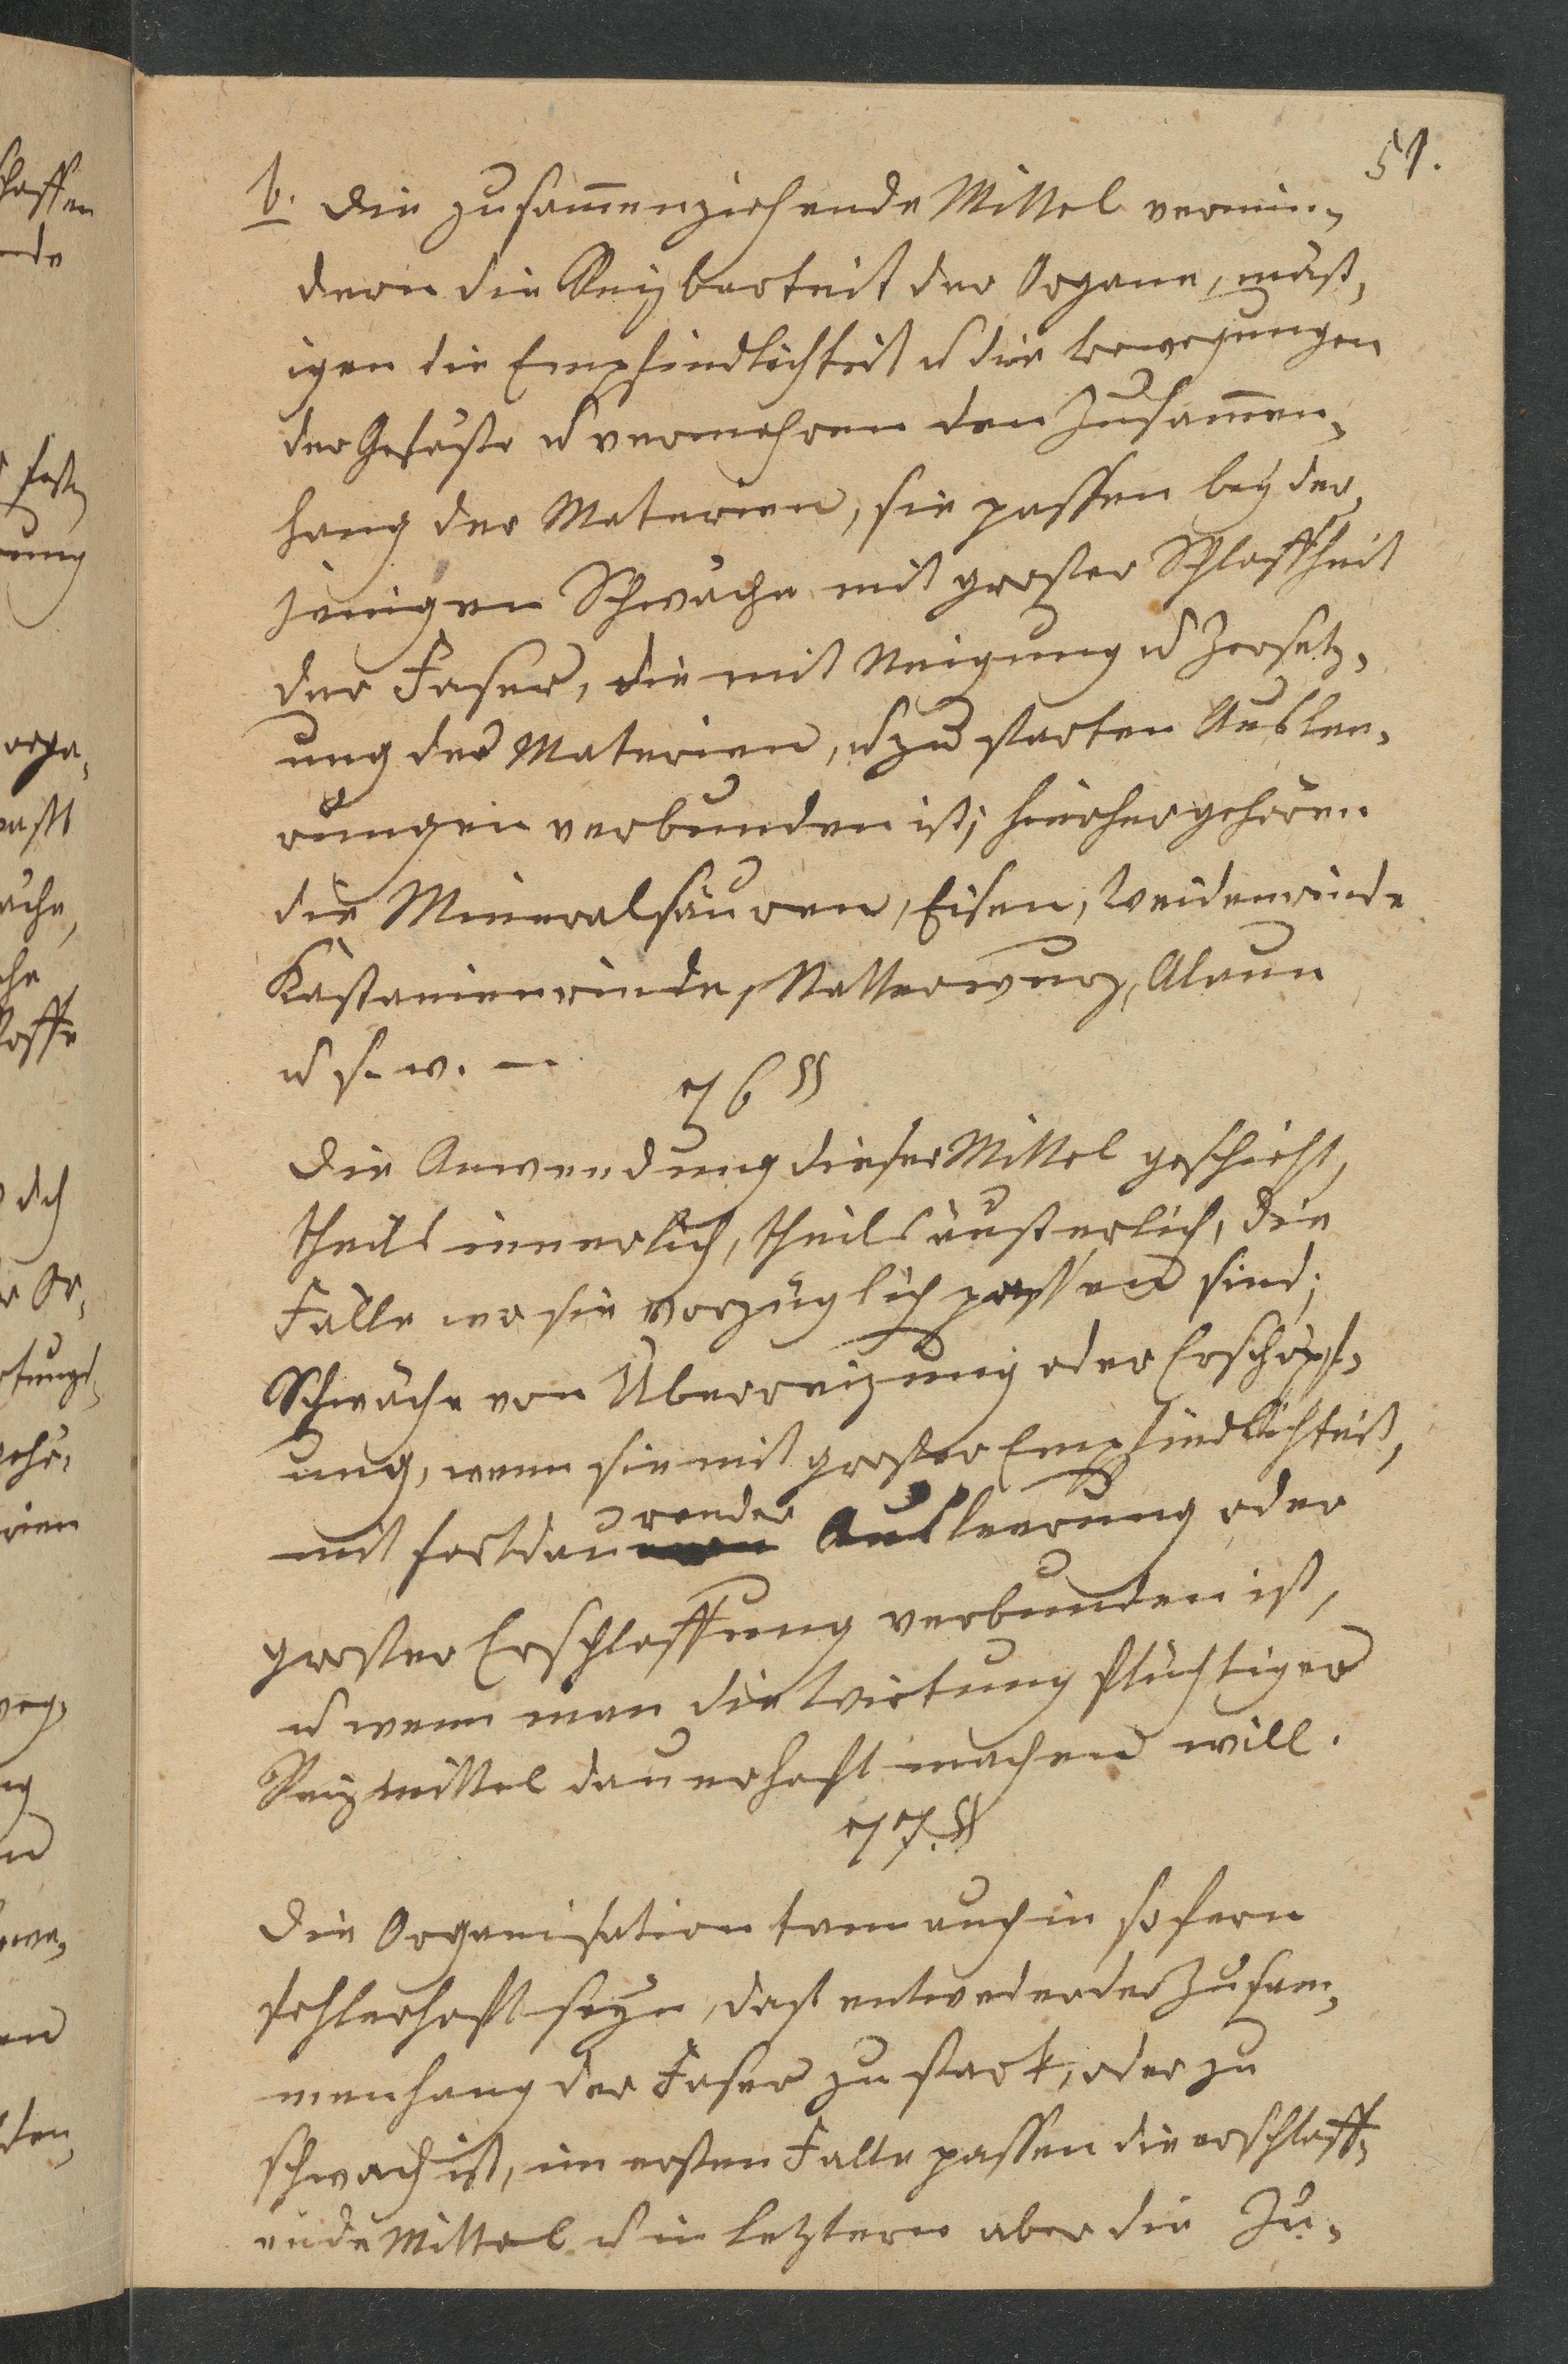 51.
b. Die zusam̅enziehende Mittel vermin-
dern die Reizbarkeit der Organe, mäß-
igen die Empfindlichkeit u die bewegungen
der Gefäße u vermehren den Zusam̅en-
hang der Materien, sie passen bey der-
jenigen Schwäche mit großer Schlaffheit
der Faser, die mit Neigung u Zersetz-
ung der Materien, u zu starken Auslee-
rungen verbunden ist; hierher gehören
die Mineralsäuren, Eisen, Weidenrinde
Kastanienrinde, Natterwurz, Alaun
u s. w. —
76 §§
Die Anwendung dieser Mittel geschieht,
theils innerlich, theils äußerlich, die
Fälle wo sie vorzüglich passen sind;
Schwäche von Überreizung oder Erschöpf-
ung, wenn sie mit großer Empfindlichkeit,
mit fortdaurender Ausleerung oder
großer Erschlaffung verbunden ist,
u wenn man die Wirkung flüchtiger
Reizmittel dauerhaft machen will.
77. §§
Die Organisation kann auch in sofern
fehlerhaft seyn, daß entweder der Zusam-
menhang der Faser zu stark, oder zu
schwach ist, im ersten Falle passen die erschlaff-
ende Mittel u im letztern aber die Zu-